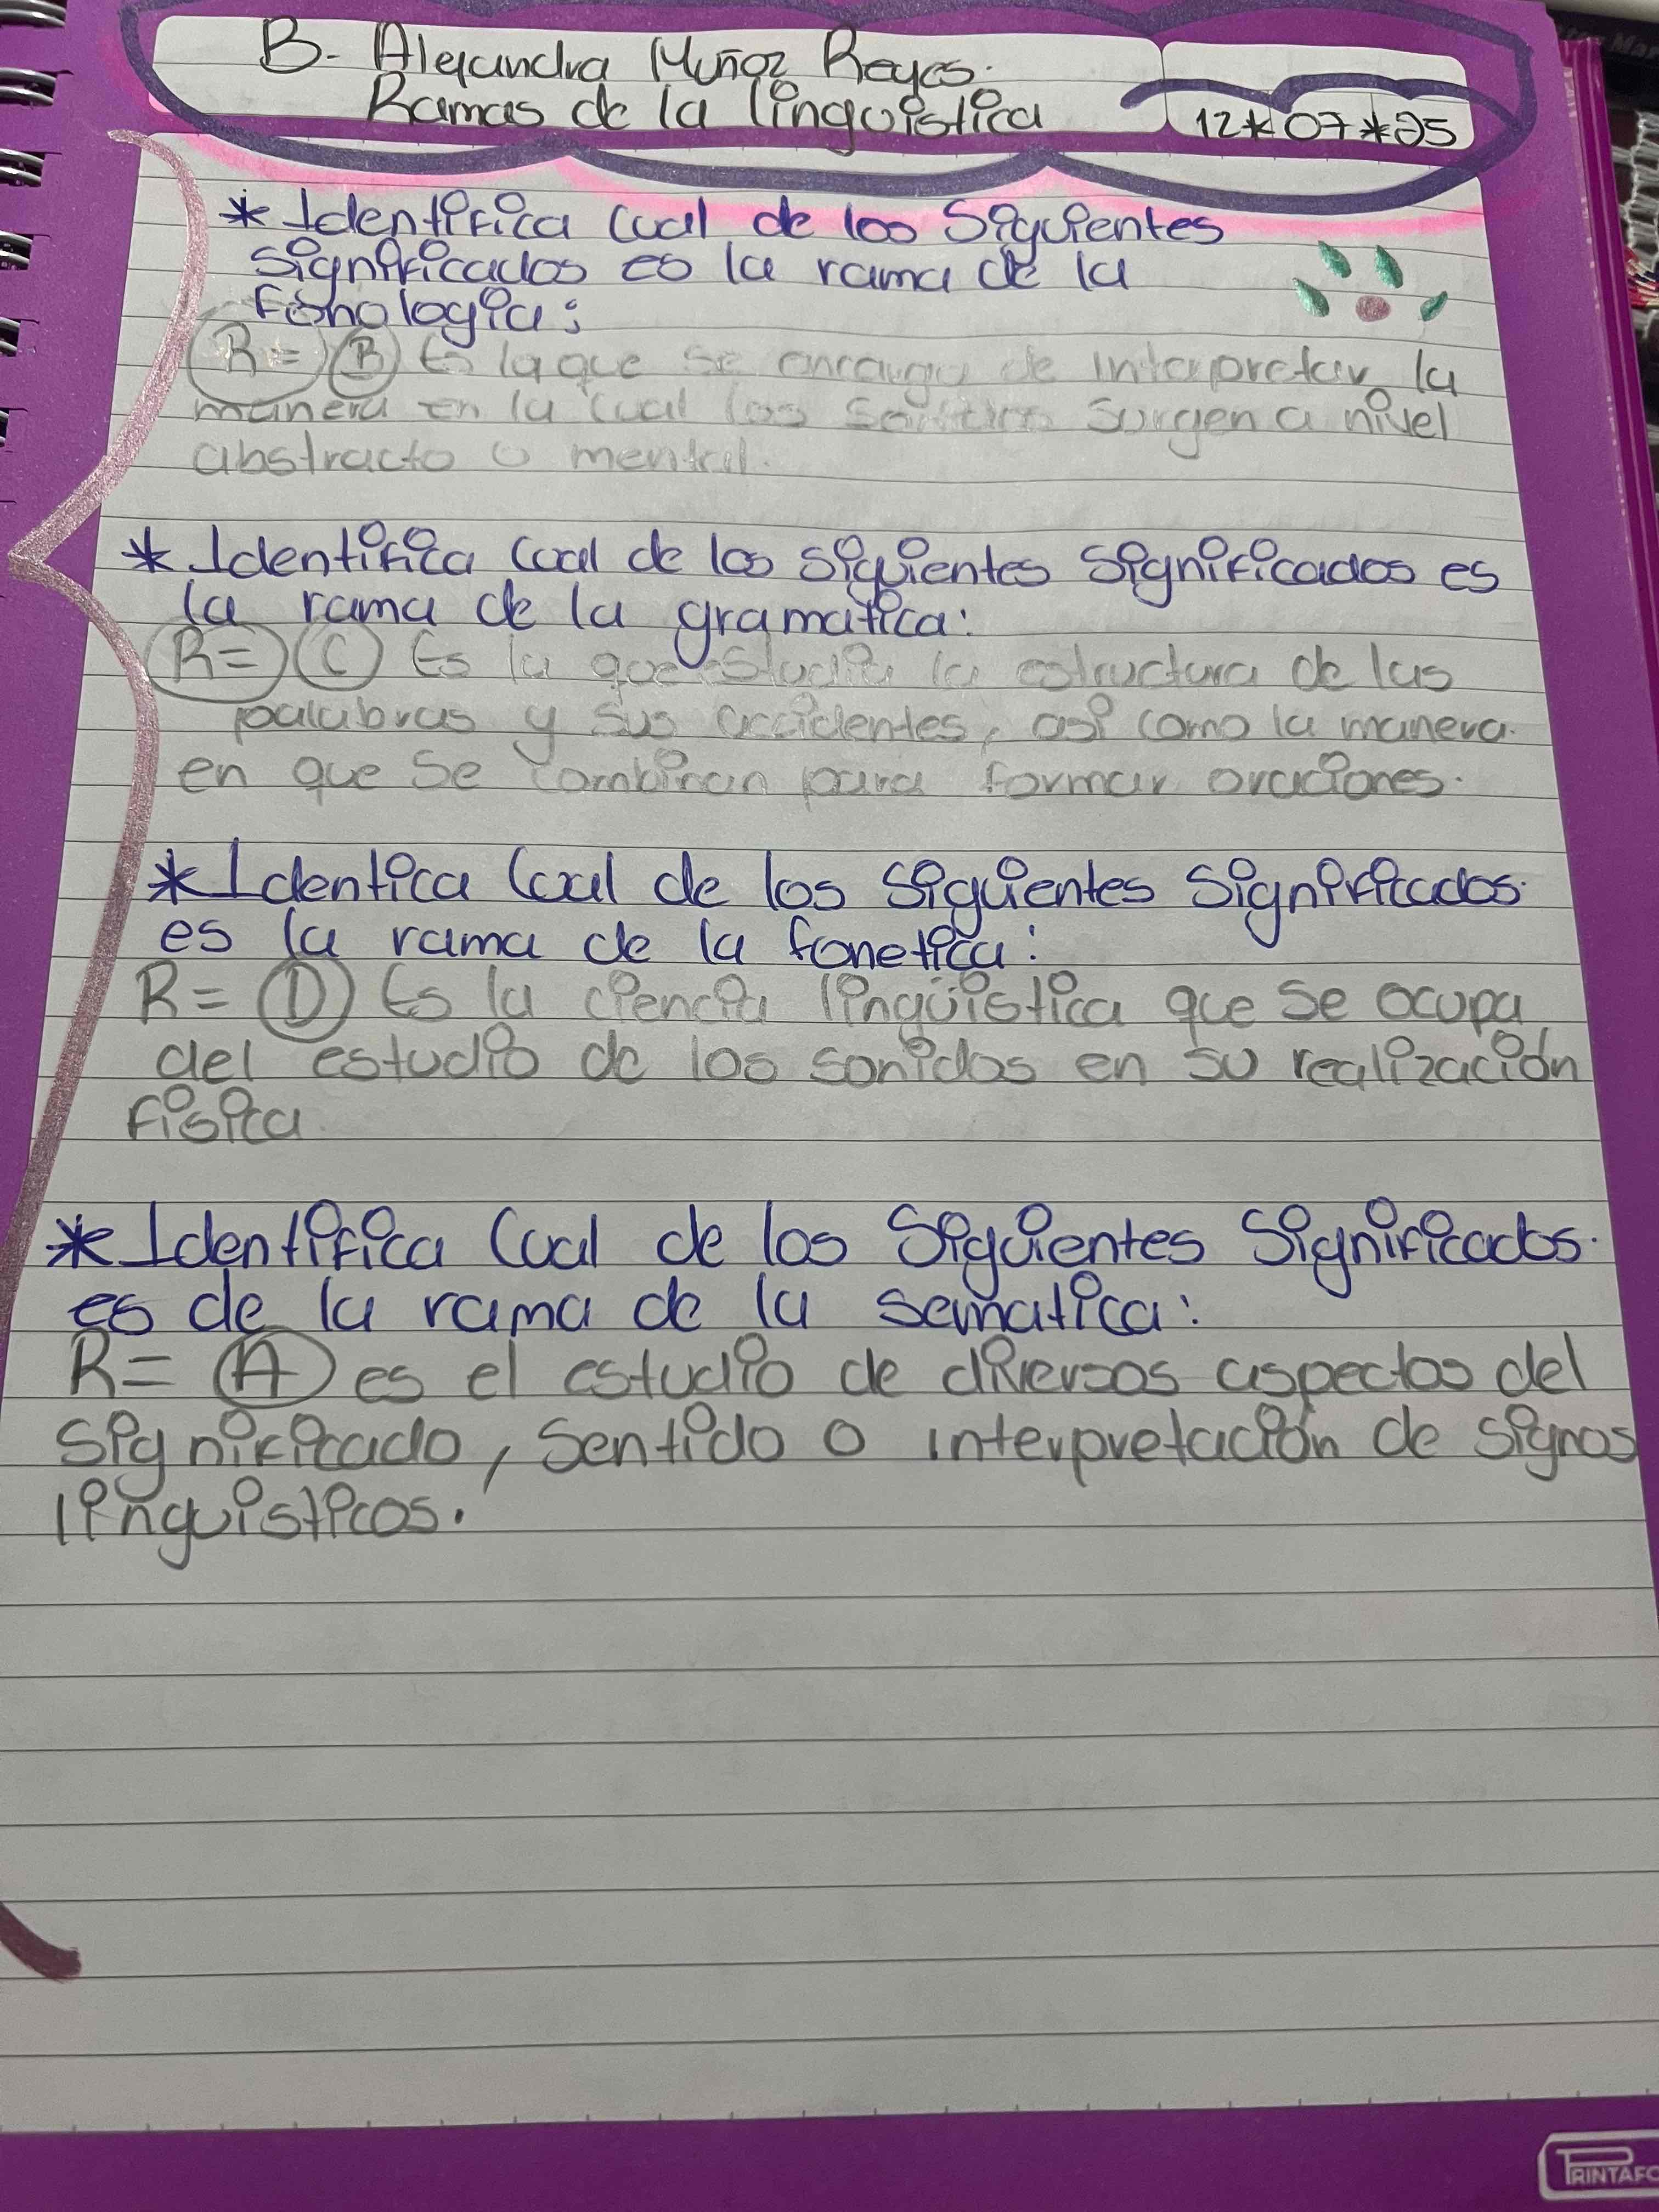 B- Alejandra Muñoz Reyes.
Ramas de la lingüistica
12*07*25
* Identifica cual de los Siguientes
significados es la rama de la
fonologia:
R= B Es la que se encarga de interpretar la
manera en la cual los surgen a nivel
abstracto o mental.
* Identifica cual de los siguientes Significados es
la rama de la gramatica:
R= C Es la que estudia la estructura de las
palabras y sus accidentes, así como la manera
en que se combinan para formar oraciones.
* Identica cual de los siguientes significados
es la rama de la fonetica:
R= D Es la ciencia lingüistica que se ocupa
del estudio de los sonidos en su realización
fisica
* Identifica cual de los Siguientes Significados.
es de la rama de la sematica:
R= A es el estudio de diversos aspectos del
significado, sentido o interpretación de signos
linguisticos.
PRINTAFO